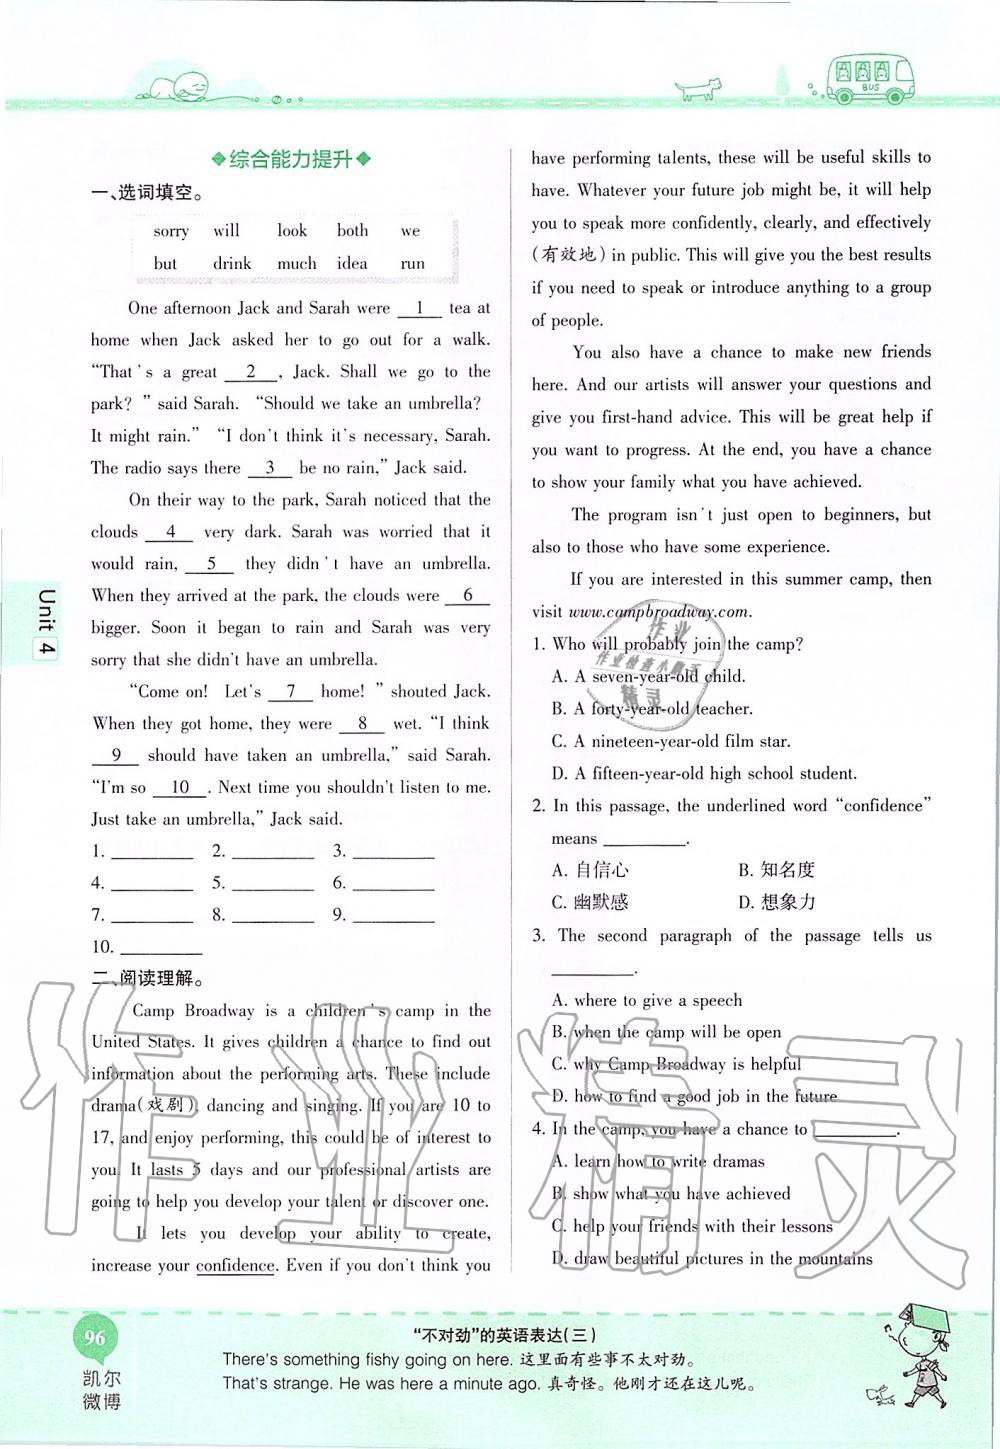 BUS
综合能力提升
一、选词填空。
sorry will look both we
but drink much idea run
One afternoon Jack and Sarah were 1 tea at
home when Jack asked her to go out for a walk.
“That's a great 2 , Jack. Shall we go to the
park? ” said Sarah. “Should we take an umbrella?
It might rain.” “I don't think it's necessary, Sarah.
The radio says there 3 be no rain,” Jack said.
On their way to the park, Sarah noticed that the
clouds 4 very dark. Sarah was worried that it
would rain, 5 they didn't have an umbrella.
When they arrived at the park, the clouds were 6
bigger. Soon it began to rain and Sarah was very
sorry that she didn't have an umbrella.
“Come on! Let's 7 home! ” shouted Jack.
When they got home, they were 8 wet. “I think
9 should have taken an umbrella,” said Sarah.
“I'm so 10 . Next time you shouldn't listen to me.
Just take an umbrella,” Jack said.
1. ________ 2. ________ 3. ________
4. ________ 5. ________ 6. ________
7. ________ 8. ________ 9. ________
10. ________
二、阅读理解。
Camp Broadway is a children's camp in the
United States. It gives children a chance to find out
information about the performing arts. These include
drama(戏剧), dancing and singing. If you are 10 to
17, and enjoy performing, this could be of interest to
you. It lasts 5 days and our professional artists are
going to help you develop your talent or discover one.
It lets you develop your ability to create,
increase your confidence. Even if you don't think you
have performing talents, these will be useful skills to
have. Whatever your future job might be, it will help
you to speak more confidently, clearly, and effectively
(有效地) in public. This will give you the best results
if you need to speak or introduce anything to a group
of people.
You also have a chance to make new friends
here. And our artists will answer your questions and
give you first-hand advice. This will be great help if
you want to progress. At the end, you have a chance
to show your family what you have achieved.
The program isn't just open to beginners, but
also to those who have some experience.
If you are interested in this summer camp, then
visit www.campbroadway.com.
1. Who will probably join the camp?
A. A seven-year-old child.
B. A forty-year-old teacher.
C. A nineteen-year-old film star.
D. A fifteen-year-old high school student.
2. In this passage, the underlined word “confidence”
means ________.
A. 自信心 B. 知名度
C. 幽默感 D. 想象力
3. The second paragraph of the passage tells us
________.
A. where to give a speech
B. when the camp will be open
C. why Camp Broadway is helpful
D. how to find a good job in the future
4. In the camp, you have a chance to ________.
A. learn how to write dramas
B. show what you have achieved
C. help your friends with their lessons
D. draw beautiful pictures in the mountains
Unit 4
作业
作业检查小助手
精灵
作业精灵
96
凯尔
微博
“不对劲”的英语表达(三)
There's something fishy going on here. 这里面有些事不太对劲。
That's strange. He was here a minute ago. 真奇怪。他刚才还在这儿呢。